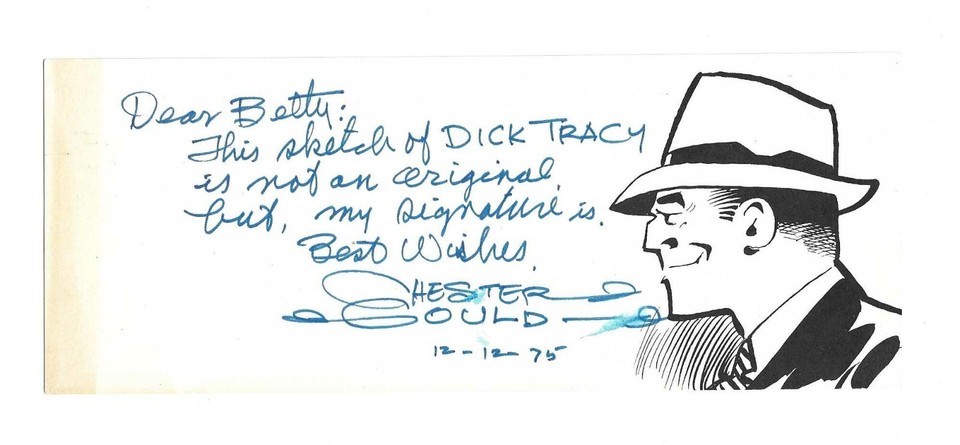 Dear Betty:
This sketch of DICK TRACY
is not an original,
but, my signature is.
Best Wishes.
CHESTER
GOULD
12-12-75